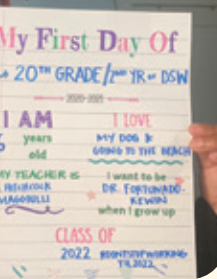 My First Day Of
20TH GRADE/2ND YR OF DSW
2020-2021
I AM
years
old
I LOVE
MY DOG &
GOING TO THE BEACH
MY TEACHER IS
HITCHCOCK
I want to be
DR. FORTUNADO-
KEWIN
when I grow up
CLASS OF
2022 #DONTSTOPWORKING